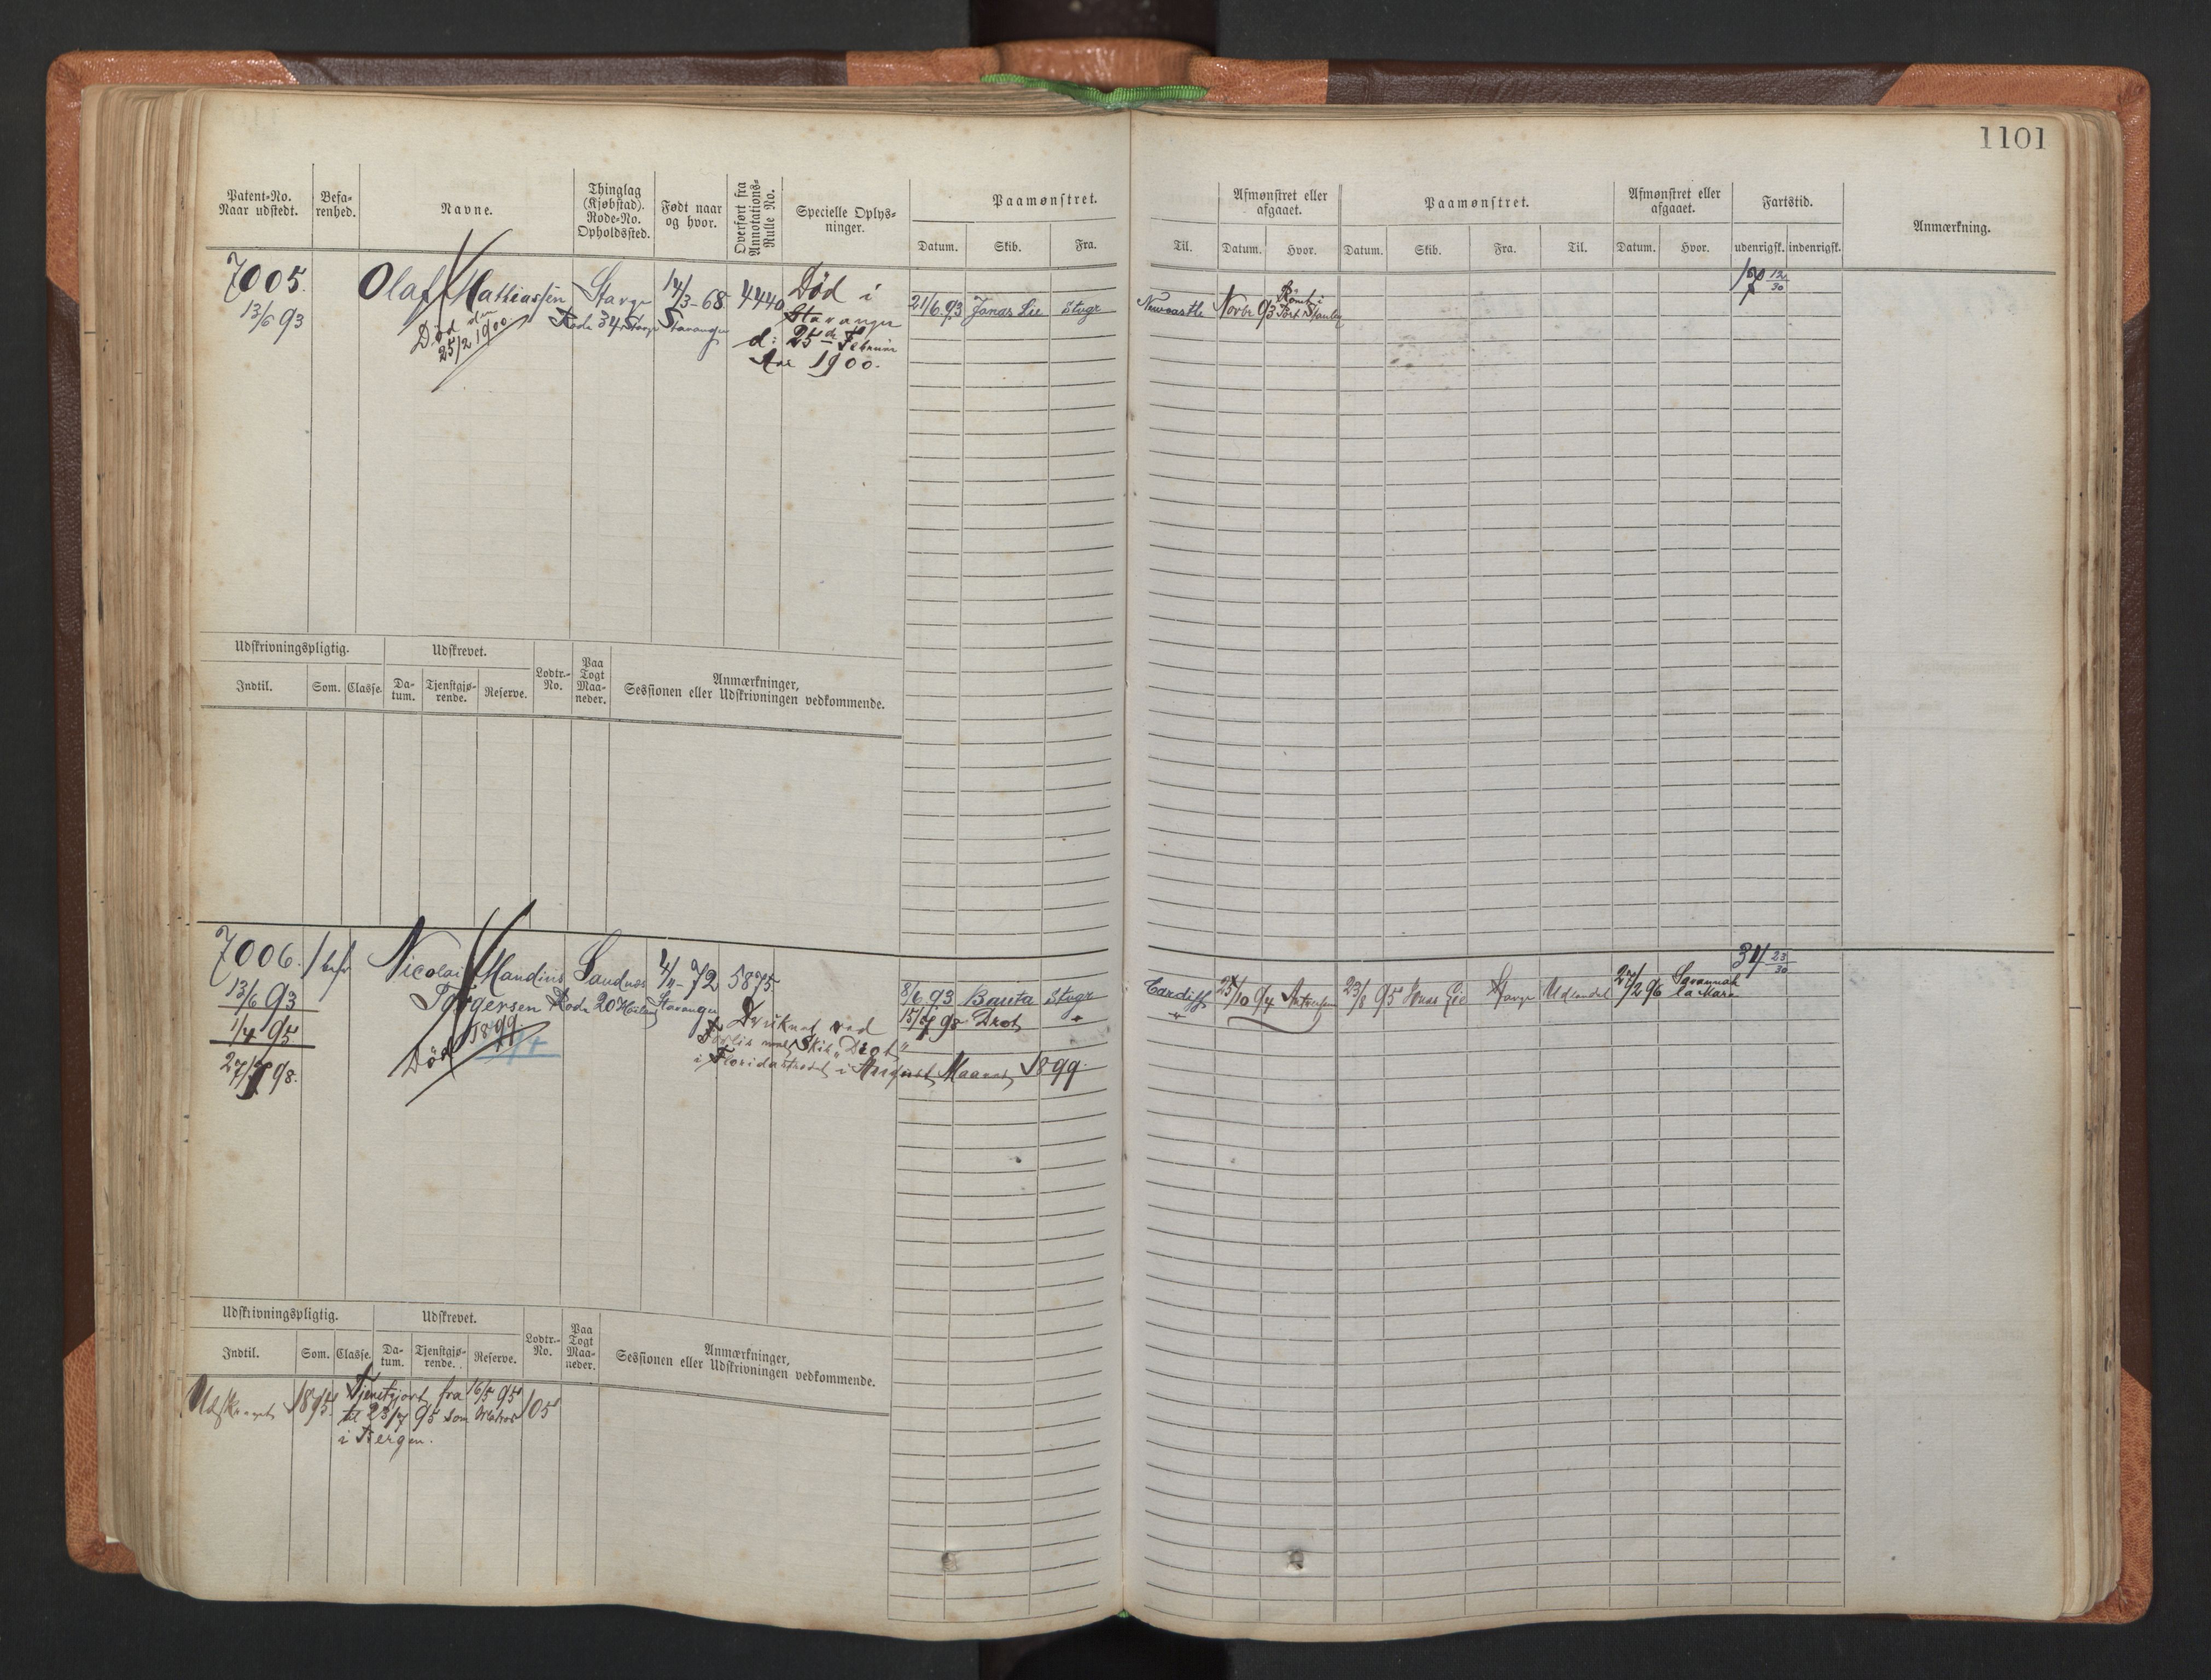 1101
Patent-No. Naar udstedt.
Befa-renhed.
Navne.
Thinglag (Kjøbstad). Rode-No. Opholdssted.
Født naar og hvor.
Overført fra Annotations-Rulle No.
Specielle Oplys-ninger.
Paamønstret.
Datum. Skib. Fra.
Til.
Afmønstret eller afgaaet.
Datum. Hvor.
Paamønstret.
Datum. Skib. Fra. Til.
Afmønstret eller afgaaet.
Datum. Hvor.
Fartstid.
udenrigsk. indenrigsk.
Anmærkning.
7005. Olaf Mathiassen Stavgr 14/3-68 4440 Død i
13/6 93 Rode 34 Stavanger Stavanger
Død den
25/2 1900
d: 25de Februar
Aar 1900.
21/6 93 Jonas Lie Stvgr Newcastle Novbr 93 Rømt i Port Stanley
12/30
Udskrivningspligtig. Udskrevet.
Indtil. Som. Classe. Da-tum. Tjenstgjø-rende. Reserve. Lodtr.-No. Paa Togt Maa-neder. Anmærkninger, Sessionen eller Udskrivningen vedkommende.
7006. Nicolai Mandius Sandnes 4/11-72 5875
13/6 93 Torgersen Rode 20 Stavanger
1/4 95
27/7 98.
Død 1899
Druknet ved
Forlis med Skib "Drot"
i Floridastrædet i August Maaned 1899.
8/6 93 Bauta Stvgr Cardiff 25/10 94 Antwerpen 23/8 95 Jonas Lie Stavgr Udlandet 27/2 96 Savannah la Mara
15/7 98 Drot "
31 23/30
Udskrivningspligtig. Udskrevet.
Indtil. Som. Classe. Da-tum. Tjenstgjø-rende. Reserve. Lodtr.-No. Paa Togt Maa-neder. Anmærkninger, Sessionen eller Udskrivningen vedkommende.
Udskrevet 1895. Tjenstgjort fra 16/5 95 105
til 23/7 95 som Matros
i Bergen.